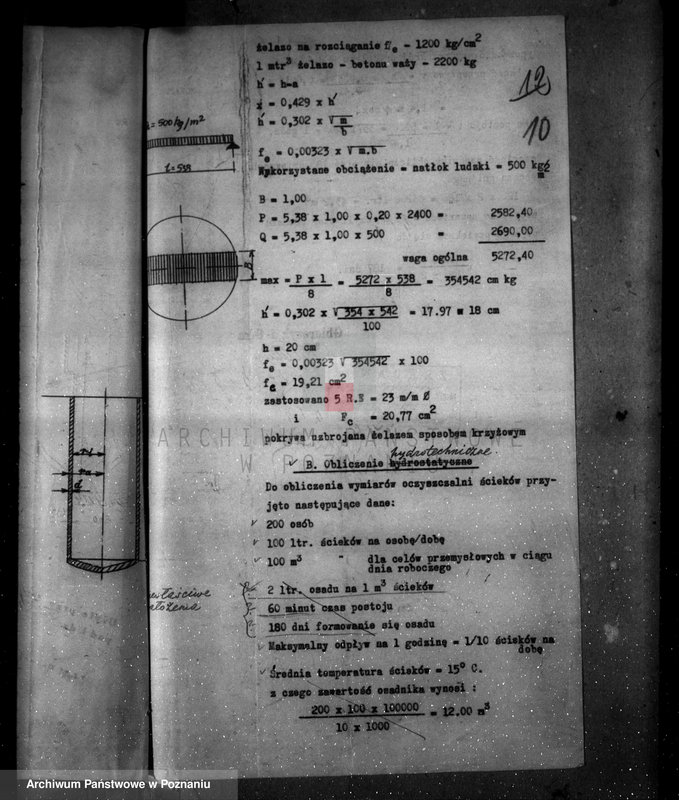 żelazo na rozciąganie f/e - 1200 kg/cm2
1 mtr3 żelazo - betonu waży - 2200 kg
h' = h-a
x = 0,429 x h'
h' = 0,302 x √ m
b
12
10
= 500 kg/m2
l = 538
B
fe = 0,00323 x √ m.b
Wykorzystane obciążenie = natłok ludzki = 500 kg/m2
B = 1,00
P = 5,38 x 1,00 x 0,20 x 2400 = 2582,40
Q = 5,38 x 1,00 x 500 = 2690,00
waga ogólna 5272,40
max = P x l = 5272 x 538 = 354542 cm kg
8 8
h' = 0,302 x √ 354 x 542 = 17.97 = 18 cm
100
h = 20 cm
fe = 0,00323 √ 354542 x 100
fe = 19,21 cm2
zastosowano 5 R.E = 23 m/m Ø
i Fc = 20,77 cm2
pokrywa uzbrojana żelazem sposobem krzyżowym
hydrotechniczne
B. Obliczenie hydrostatyczne
Do obliczenia wymiarów oczyszczalni ścieków przy-
jęto następujące dane:
200 osób
100 ltr. ścieków na osobę/dobę
100 m3 " dla celów przemysłowych w ciągu
dnia roboczego
2 ltr. osadu na 1 m3 ścieków
60 minut czas postoju
180 dni formowanie się osadu
Maksymalny odpływ na 1 godzinę = 1/10 ścieków na
dobę
Średnia temperatura ścieków = 15° C.
z czego zawartość osadnika wynosi :
200 x 100 x 100000 = 12.00 m3
10 x 1000
d
ARCHIWUM PAŃSTWOWE
W POZNANIU
Archiwum Państwowe w Poznaniu